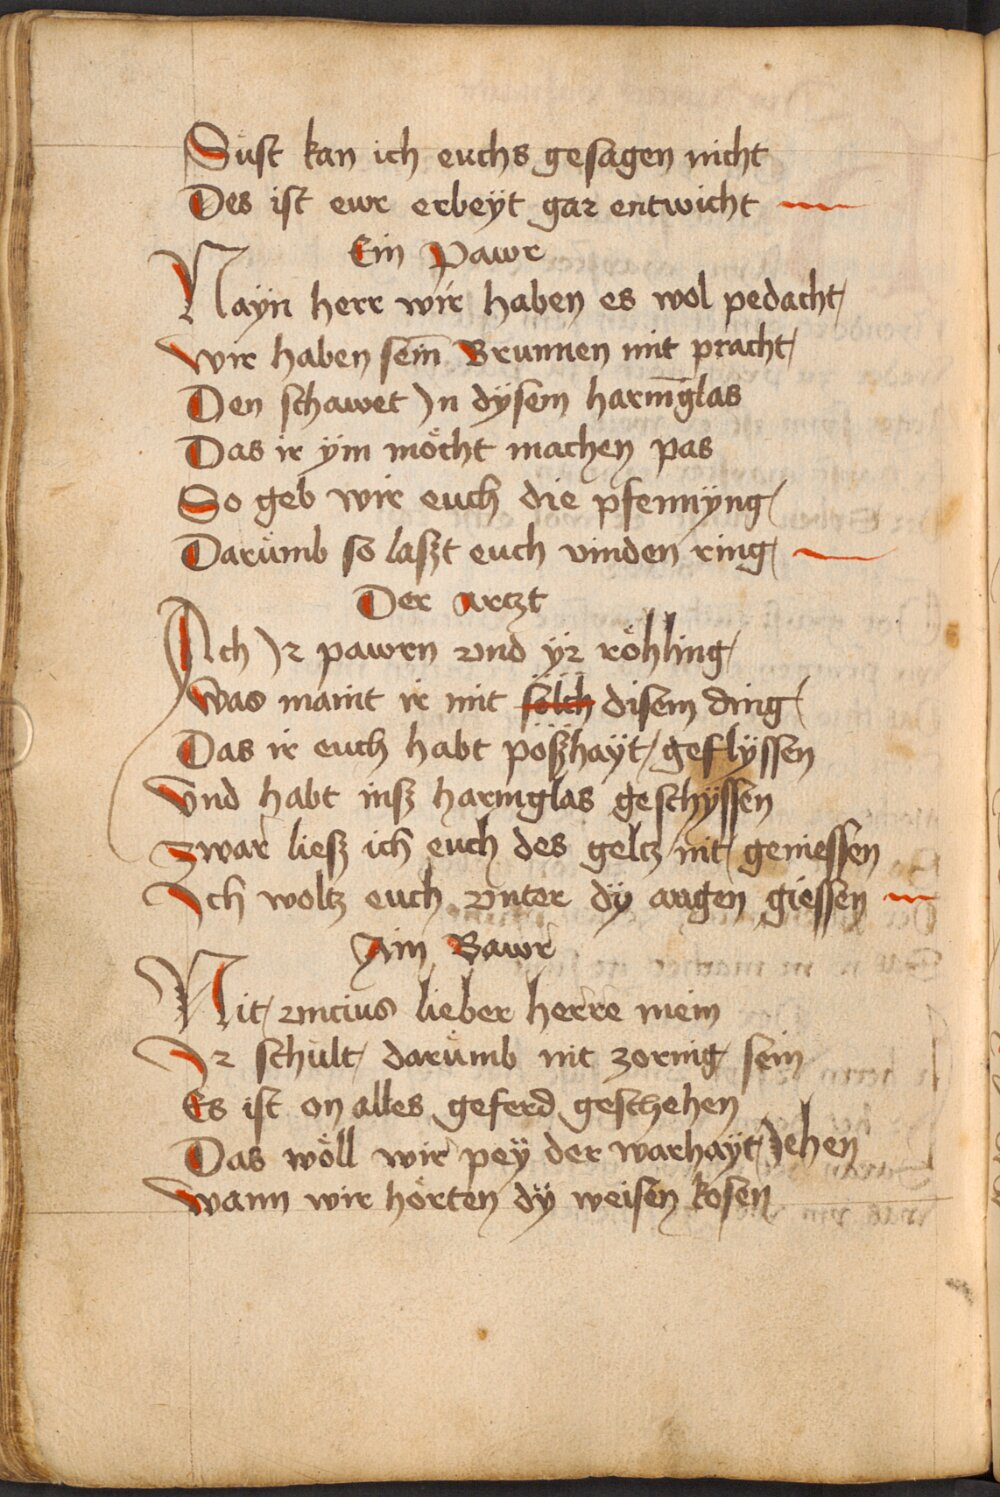 Süst kan ich euchs gesagen nicht
Des ist ewr erbeÿt gar entwicht
Ein Pawr
Nayn herr wir haben es wol pedacht
Wir haben sem̄ Brunnen mit pracht
Den schawet Jn dÿsem harm̄glas
Das ir ÿm möcht machen pas
So geb wir euch die pfennÿng
Darümb so laßt euch vinden ring
Der artzt
Ach Jr pawrn vnd ÿr röhling
Was maint ir mit sölch disem ding
Das ir euch habt pößhaÿt geflÿssen
Vnd habt inß harmglas geschÿssen
Zwar ließ ich euch des geltz nit geniessen
Ich woltz euch vnter dÿ augen giessen
Ain Bawr
Nit vncius lieber herre mein
Ir schült darümb nit zornig sein
Es ist on alles geferd geschehen
Das wöll wir peÿ der warhaÿt Jehen
Wann wir hörten dÿ weisen kosen